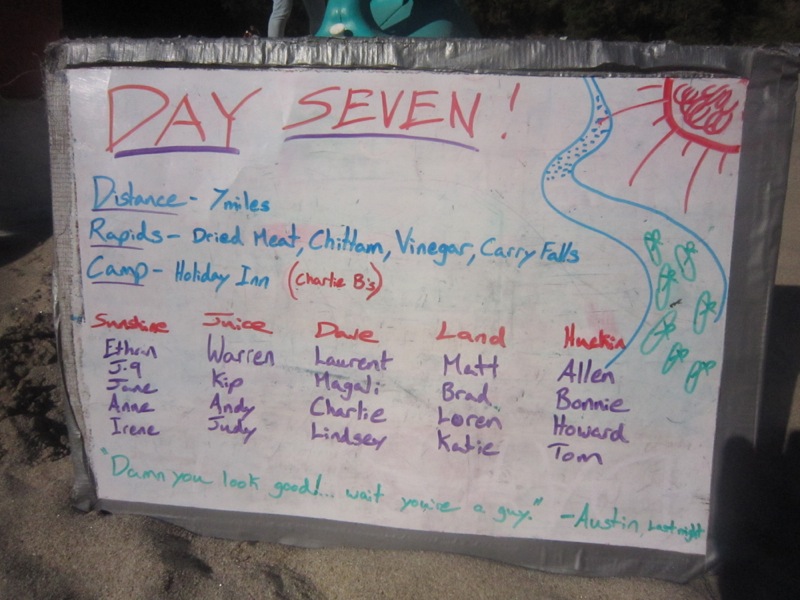 DAY SEVEN!
Distance - 7miles
Rapids - Dried Meat, Chittam, Vinegar, Carry Falls
Camp - Holiday Inn (Charlie B's)
Sunshine Juice Dave Land Huckin
Ethan Warren Laurent Matt Allen
J-9 Kip Magali Brad Bonnie
Jane Andy Charlie Loren Howard
Anne Judy Lindsey Katie Tom
Irene
"Damn you look good!... wait you're a guy." - Austin, Last night